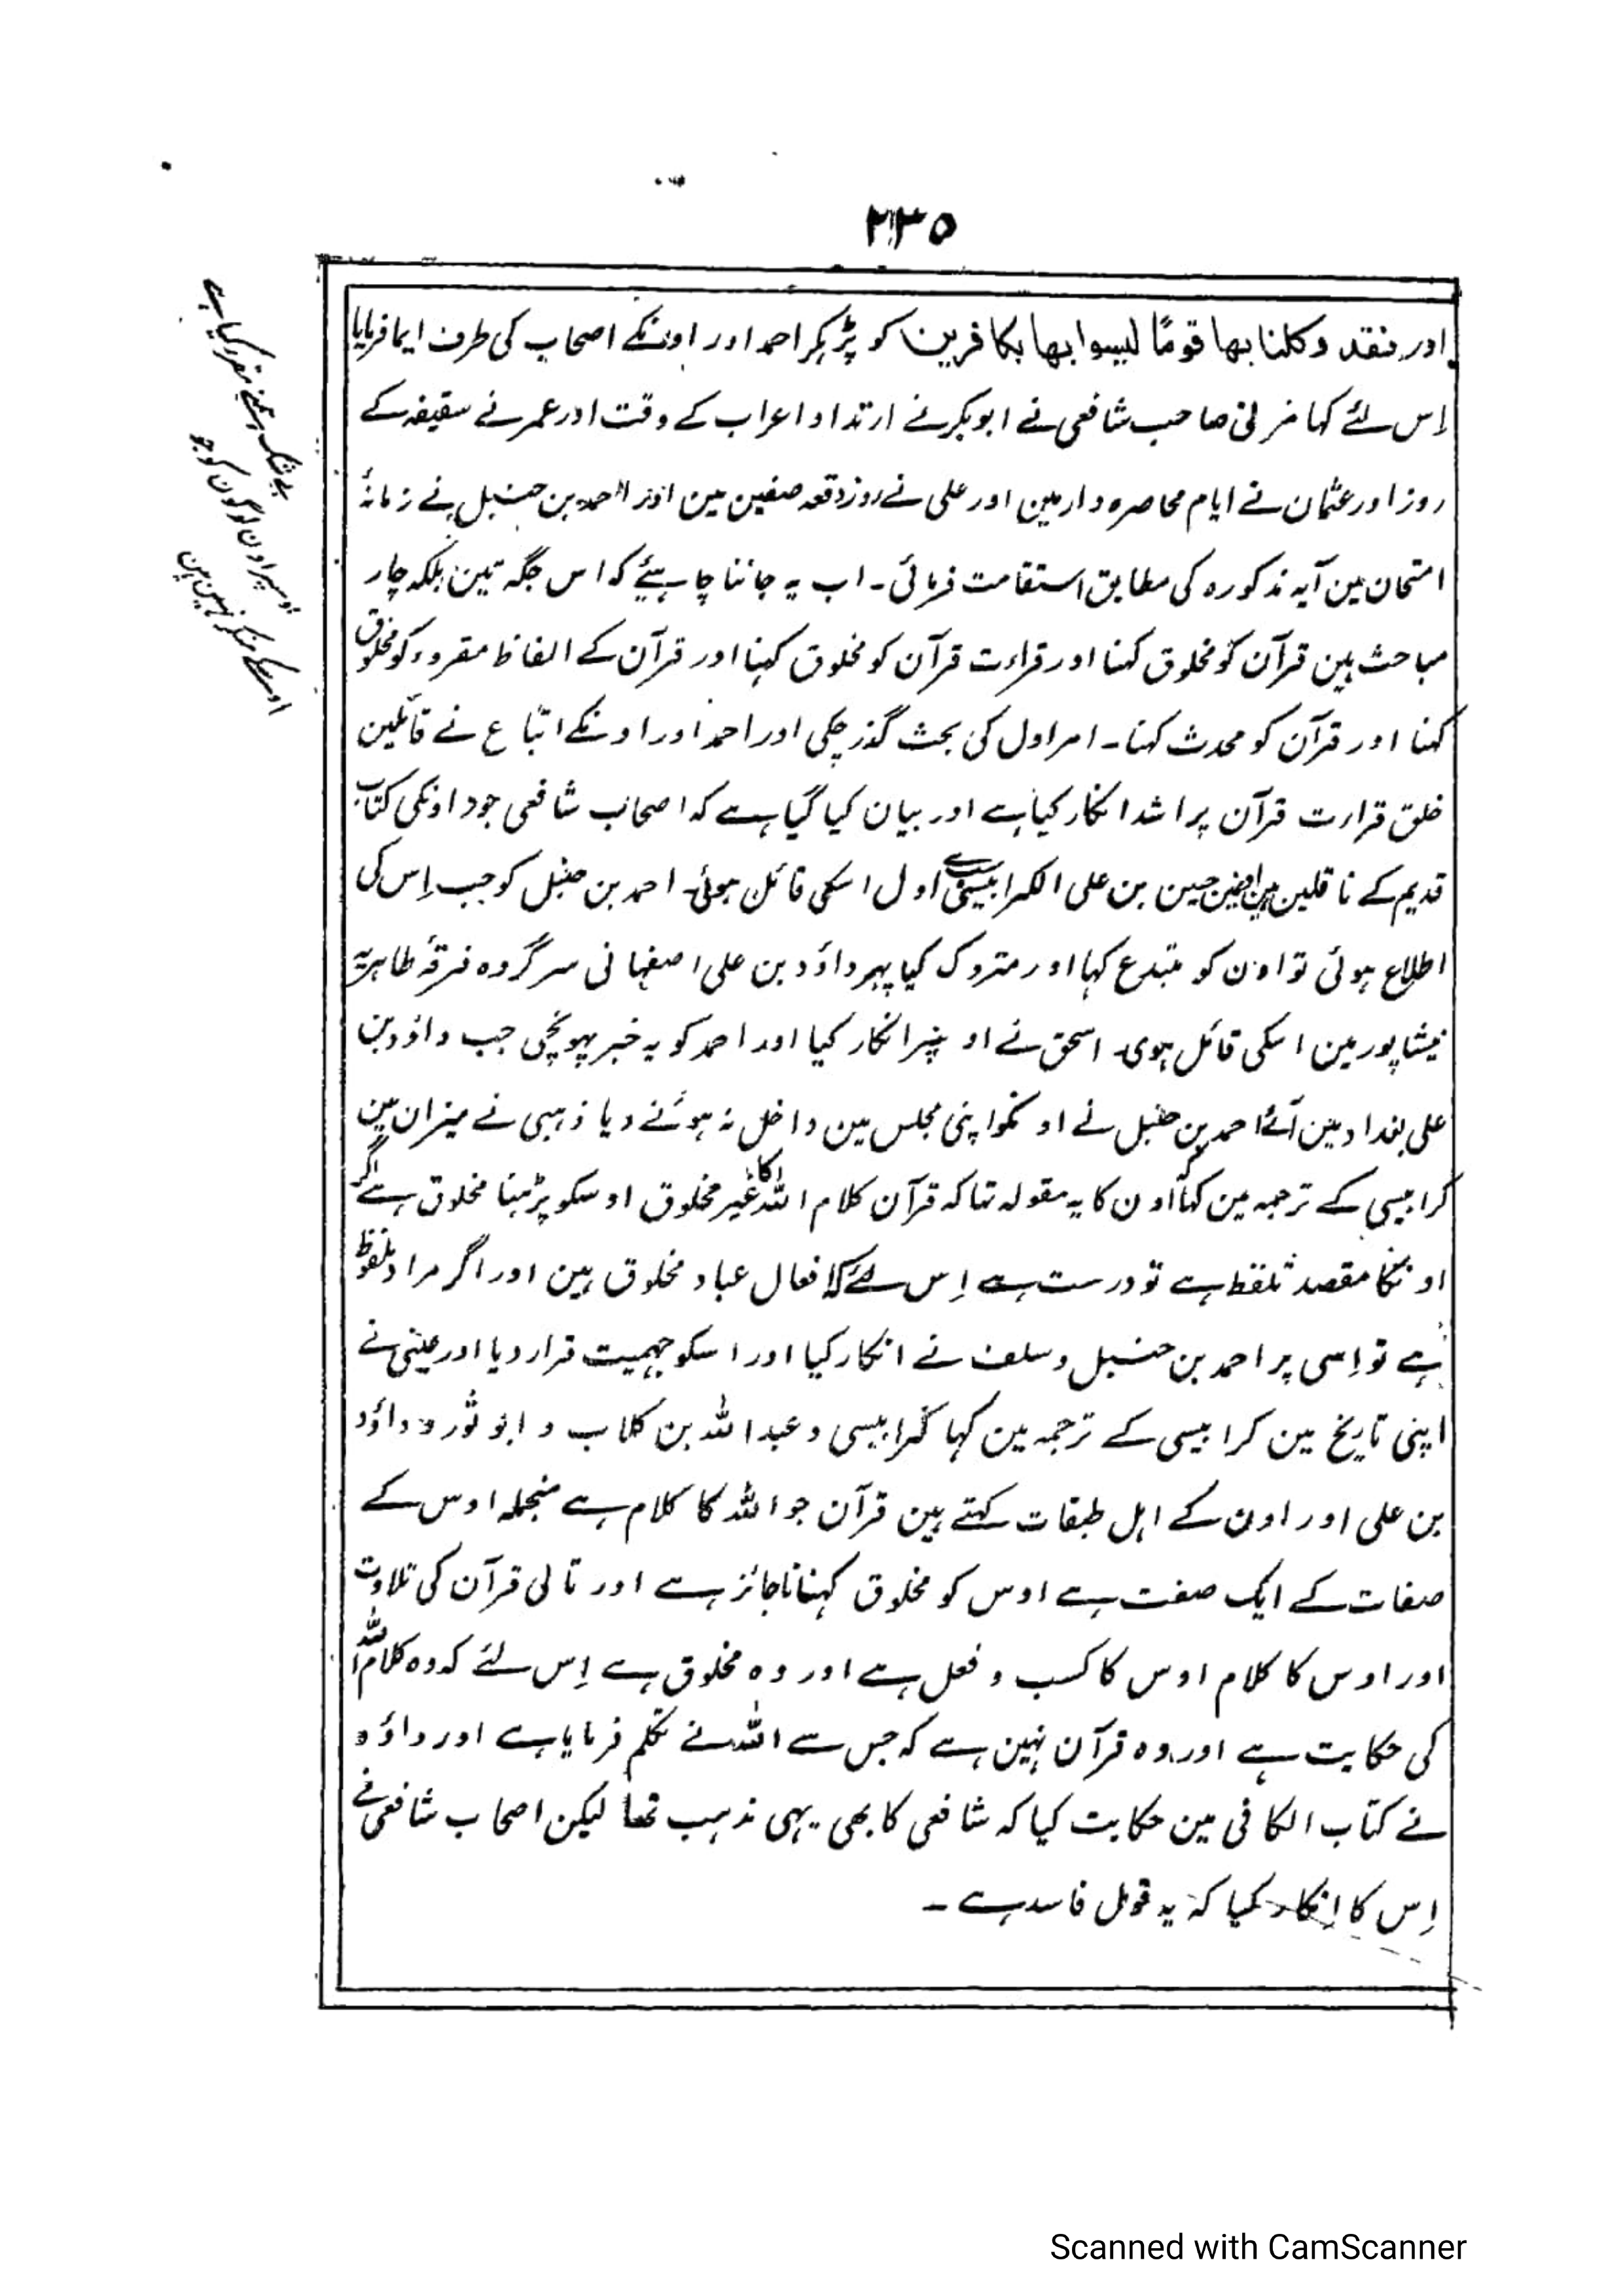 ۲۳۵
اور فقد وکلنا بھا قومًا لیسوا بھا بکافرین کو پڑہکر احمد اور اونکے اصحاب کی طرف ایما فرمایا
اِس لئے کہا مزنی صاحب شافعی نے ابوبکر نے ارتداد اعراب کے وقت اور عمر نے سقیفہ کے
روز اور عثمان نے ایام محاصرہ دار مین اور علی نے روز وقعہ صفین مین اور احمد بن حنبل نے زمانۂ
امتحان مین آیہ مذکورہ کی مطابق استقامت فرمائی۔ اب یہ جاننا چاہیئے کہ اس جگہ تین بلکہ چار
مباحث ہین قرآن کو مخلوق کہنا اور قراءت قرآن کو مخلوق کہنا اور قرآن کے الفاظ مقروء کو مخلوق
کہنا اور قرآن کو محدث کہنا۔ امر اول کی بحث گذر چکی اور احمد اور اونکے اتباع نے قائلین
خلق قراءت قرآن پر اشد انکار کیا ہے اور بیان کیا گیا ہے کہ اصحاب شافعی جو اونکی کتاب
قدیم کے ناقلین ہین حسین بن علی الکرابیسی سے اول اسکی قائل ہوئی۔ احمد بن حنبل کو جب اِس کی
اطلاع ہوئی تو اون کو مبتدع کہا اور متروک کیا پہر داؤد بن علی اصفہانی سرگروہ فرقۂ ظاہریہ
نیشاپور مین اسکی قائل ہوی۔ اسحق نے اونپر انکار کیا اور احمد کو یہ خبر پہونچی جب داؤد بن
علی بغداد مین آئے احمد بن حنبل نے اونکو اپنی مجلس مین داخل نہ ہونے دیا ذہبی نے میزان مین
کرابیسی کے ترجمہ مین کہا کہ اون کا یہ مقولہ تہا کہ قرآن کلام اللہ کا غیر مخلوق اوسکو پڑہنا مخلوق ہے اگر
اونکا مقصد تلفظ ہے تو درست ہے اِس لئے کہ افعال عباد مخلوق ہین اور اگر مراد ملفوظ
ہے تو اِسی پر احمد بن حنبل و سلف نے انکار کیا اور اسکو جہمیت قرار دیا اور عینی نے
اپنی تاریخ مین کرابیسی کے ترجمہ مین کہا کرابیسی و عبداللہ بن کلاب و ابو ثور و داؤد
بن علی اور اون کے اہل طبقات کہتے ہین قرآن جو اللہ کا کلام ہے منجملہ اوس کے
صفات کے ایک صفت ہے اوس کو مخلوق کہنا ناجائز ہے اور تالی قرآن کی تلاوت
اور اوس کا کلام اوس کا کسب و فعل ہے اور وہ مخلوق ہے اِس لئے کہ وہ کلام اللہ
کی حکایت ہے اور وہ قرآن نہین ہے کہ جس سے اللہ نے تکلم فرمایا ہے اور داؤد
نے کتاب الکافی مین حکایت کیا کہ شافعی کا بھی یہی مذہب تھا لیکن اصحاب شافعی نے
اِس کا انکار کیا کہ یہ قول فاسد ہے ۔
بے شک ہمنے مقرر کیا ہے
اوسپر اون لوگون کو جو
اوسکے منکر نہین ہین
Scanned with CamScanner